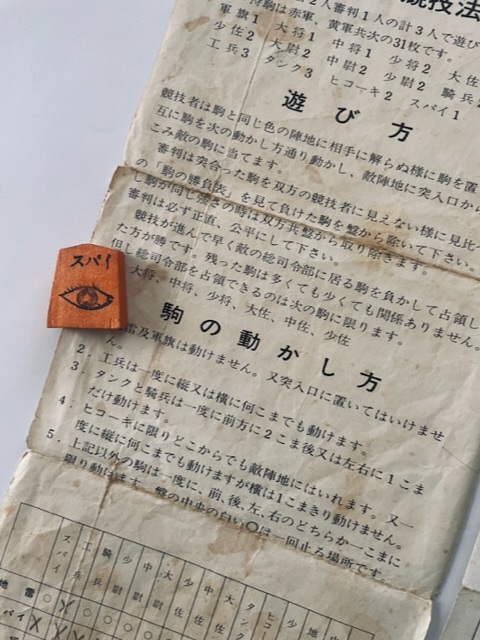 競技法
2人審判1人の計3人で遊び
将棋駒は赤軍、黄軍共次の31枚です。
軍旗1 大将1 中将1 少将2 大佐
少佐2 大尉2 中尉2 少尉2 騎兵
工兵3 タンク3 ヒコーキ2 スパイ1
遊び方
競技者は駒と同じ色の陣地に相手に解らぬ様に駒を置
互に駒を次の動かし方通り動かし、敵陣地に突入口から
こみ敵の駒に当てます。
審判は突合った駒を双方の競技者に見えない様に見比
の「駒の勝負表」を見て負けた駒を盤から除いて下さい。
し駒が同じ強さの時は双方共盤から取り除きます。
審判は必ず正直、公平にして下さい。
競技が進んで早く敵の総司令部に居る駒を負かして占領し
た方が勝です。残った駒は多くても少くても関係ありません。
但し総司令部を占領できるのは次の駒に限ります。
大将、中将、少将、大佐、中佐、少佐
駒の動かし方
雷及軍旗は動けません。又突入口に置いてはいけませ
ん。
2. 工兵は一度に縦又は横に何こまでも動けます。
3. タンクと騎兵は一度に前方に2こま後又は左右に1こま
だけ動けます。
4. ヒコーキに限りどこからでも敵陣地にはいれます。又一
度に縦に何こまでも動けますが横は1こまきり動けません。
5. 上記以外の駒は一度に、前、後、左、右のどちらか一こまに
限り動けます。盤の中央の白い○は一回止る場所です。
スパイ
スパイ 工兵 騎兵 少尉 中尉 大尉 少佐 中佐 大佐 タンク ヒコー 少
地雷
パイ